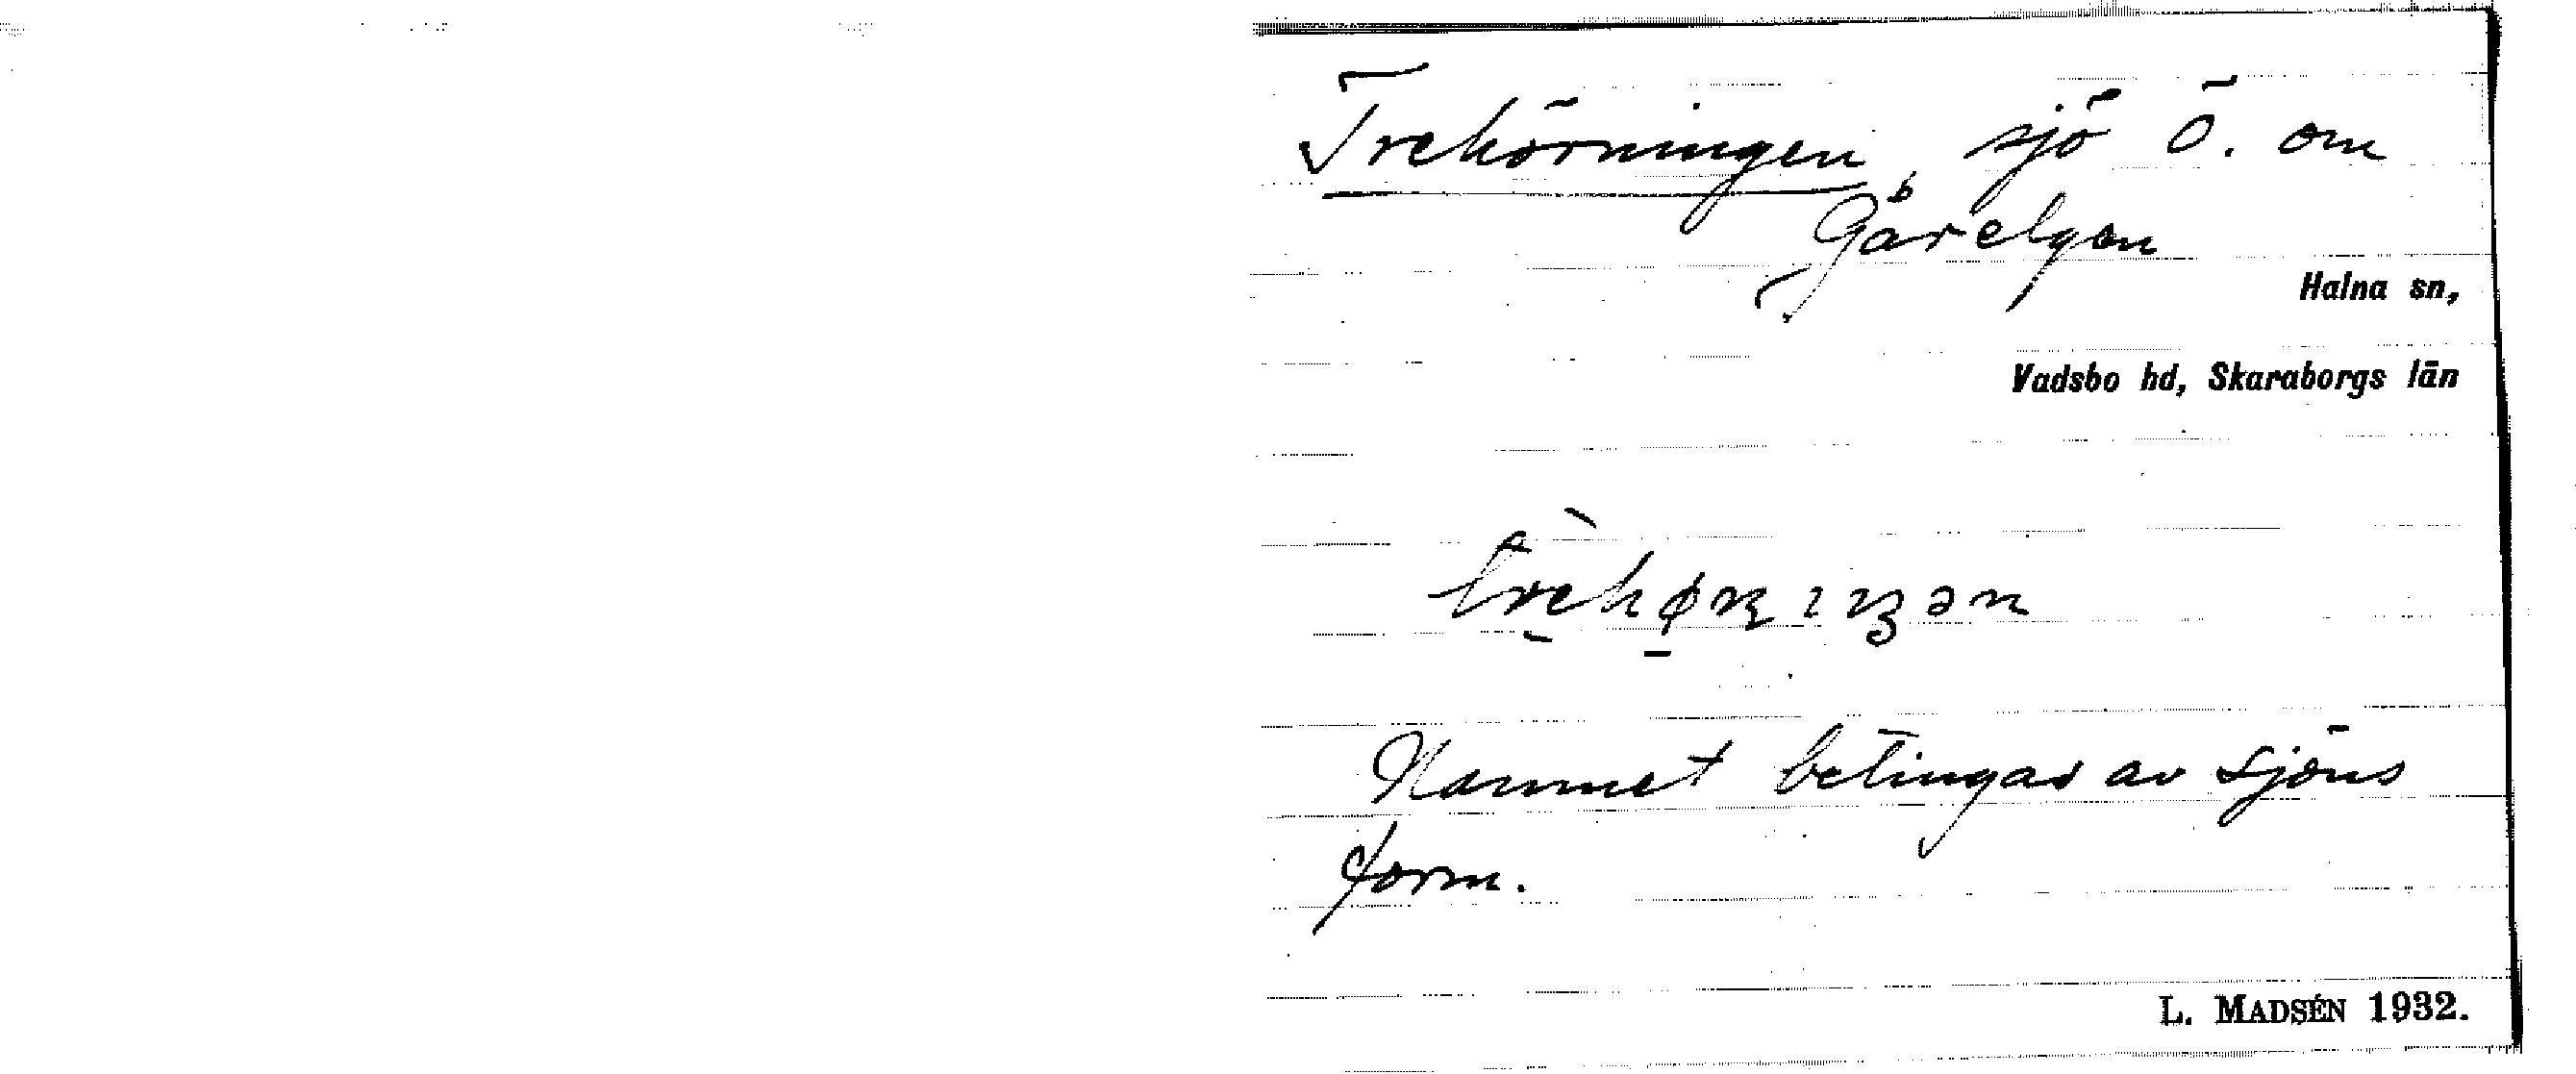 Trehörningen sjö Ö. om
Gårelgen
Halna sn,
Vadsbo hd, Skaraborgs län
Namnet betingas av sjöns
form.
L. MADSÉN 1932.